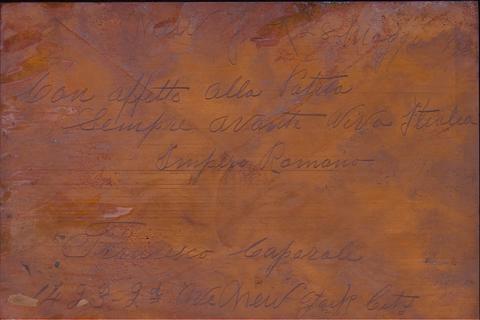 New Y 28 Maggio
Con affetto alla Patria
Sempre avante Viva Italia
Impero Romano
Francesco Caporale
1423-2d Ave New York City